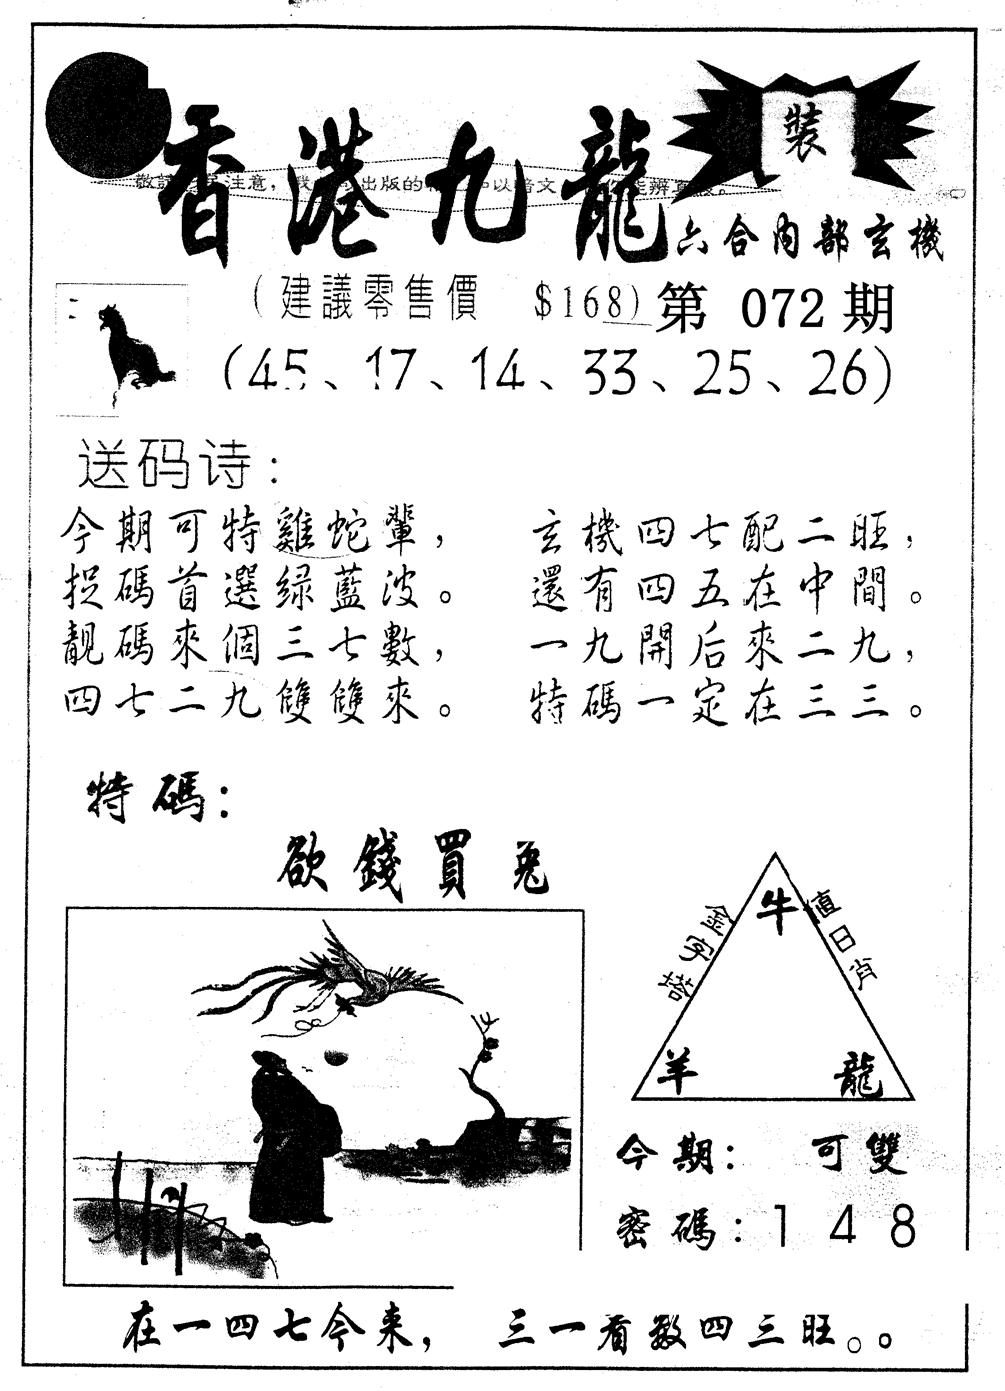 香港九龍
裝
敬請 注意, 出版的 以暗文 能辨真假。
六合內部玄機
(建議零售價 $168)
第 072 期
(45、17、14、33、25、26)
送码诗:
今期可特雞蛇輩,
捉碼首選绿藍波。
靚碼來個三七數,
四七二九雙雙來。
玄機四七配二旺,
還有四五在中間。
一九開后來二九,
特碼一定在三三。
特碼:
欲錢買兔
金字塔
牛
值日肖
羊
龍
今期: 可雙
密碼:148
在一四七今来, 三一看数四三旺。。